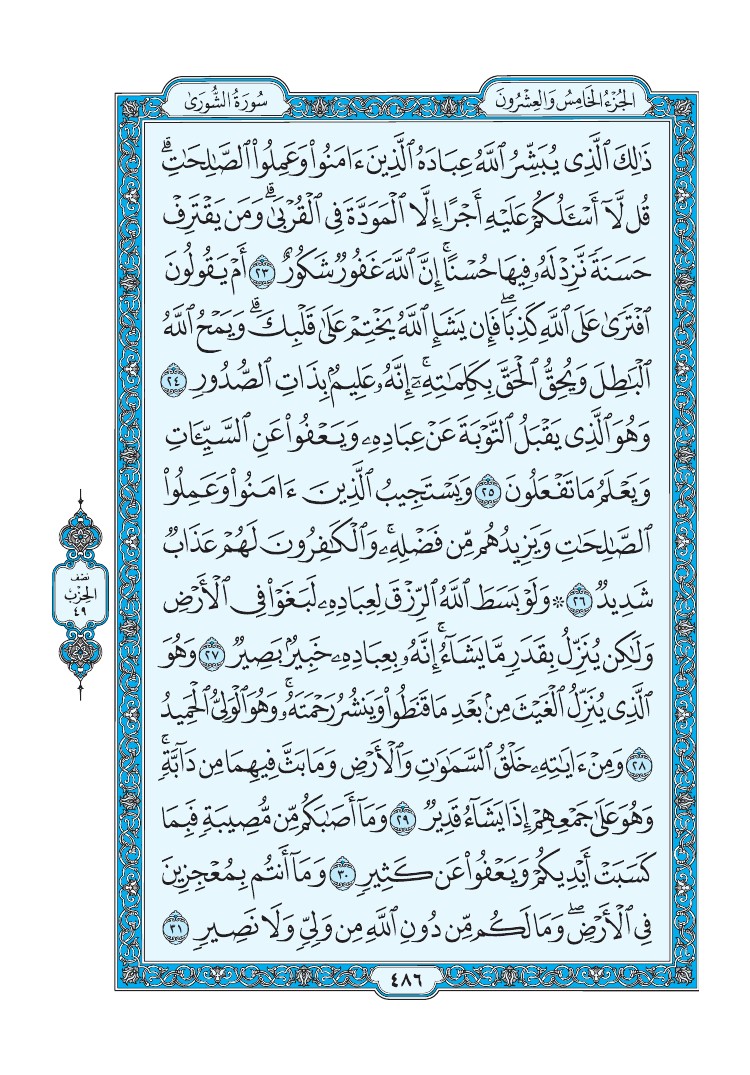 الجُزْءُ الخَامِسُ وَالعِشْرُونَ
سُورَةُ الشُّورَىٰ
ذَٰلِكَ ٱلَّذِى يُبَشِّرُ ٱللَّهُ عِبَادَهُ ٱلَّذِينَ ءَامَنُوا۟ وَعَمِلُوا۟ ٱلصَّـٰلِحَـٰتِ ۗ
قُل لَّآ أَسْـَٔلُكُمْ عَلَيْهِ أَجْرًا إِلَّا ٱلْمَوَدَّةَ فِى ٱلْقُرْبَىٰ ۗ وَمَن يَقْتَرِفْ
حَسَنَةً نَّزِدْ لَهُۥ فِيهَا حُسْنًا ۚ إِنَّ ٱللَّهَ غَفُورٌ شَكُورٌ ٢٣ أَمْ يَقُولُونَ
ٱفْتَرَىٰ عَلَى ٱللَّهِ كَذِبًا ۖ فَإِن يَشَإِ ٱللَّهُ يَخْتِمْ عَلَىٰ قَلْبِكَ ۗ وَيَمْحُ ٱللَّهُ
ٱلْبَـٰطِلَ وَيُحِقُّ ٱلْحَقَّ بِكَلِمَـٰتِهِۦٓ ۚ إِنَّهُۥ عَلِيمٌۢ بِذَاتِ ٱلصُّدُورِ ٢٤
وَهُوَ ٱلَّذِى يَقْبَلُ ٱلتَّوْبَةَ عَنْ عِبَادِهِۦ وَيَعْفُوا۟ عَنِ ٱلسَّيِّـَٔاتِ
وَيَعْلَمُ مَا تَفْعَلُونَ ٢٥ وَيَسْتَجِيبُ ٱلَّذِينَ ءَامَنُوا۟ وَعَمِلُوا۟
ٱلصَّـٰلِحَـٰتِ وَيَزِيدُهُم مِّن فَضْلِهِۦ ۚ وَٱلْكَـٰفِرُونَ لَهُمْ عَذَابٌ
شَدِيدٌ ٢٦ ۞ وَلَوْ بَسَطَ ٱللَّهُ ٱلرِّزْقَ لِعِبَادِهِۦ لَبَغَوْا۟ فِى ٱلْأَرْضِ
وَلَـٰكِن يُنَزِّلُ بِقَدَرٍ مَّا يَشَآءُ ۚ إِنَّهُۥ بِعِبَادِهِۦ خَبِيرٌۢ بَصِيرٌ ٢٧ وَهُوَ
ٱلَّذِى يُنَزِّلُ ٱلْغَيْثَ مِنۢ بَعْدِ مَا قَنَطُوا۟ وَيَنشُرُ رَحْمَتَهُۥ ۚ وَهُوَ ٱلْوَلِىُّ ٱلْحَمِيدُ
٢٨ وَمِنْ ءَايَـٰتِهِۦ خَلْقُ ٱلسَّمَـٰوَٰتِ وَٱلْأَرْضِ وَمَا بَثَّ فِيهِمَا مِن دَآبَّةٍ ۚ
وَهُوَ عَلَىٰ جَمْعِهِمْ إِذَا يَشَآءُ قَدِيرٌ ٢٩ وَمَآ أَصَـٰبَكُم مِّن مُّصِيبَةٍ فَبِمَا
كَسَبَتْ أَيْدِيكُمْ وَيَعْفُوا۟ عَن كَثِيرٍ ٣٠ وَمَآ أَنتُم بِمُعْجِزِينَ
فِى ٱلْأَرْضِ ۖ وَمَا لَكُم مِّن دُونِ ٱللَّهِ مِن وَلِىٍّ وَلَا نَصِيرٍ ٣١
نصف
الحِزْب
٤٩
٤٨٦